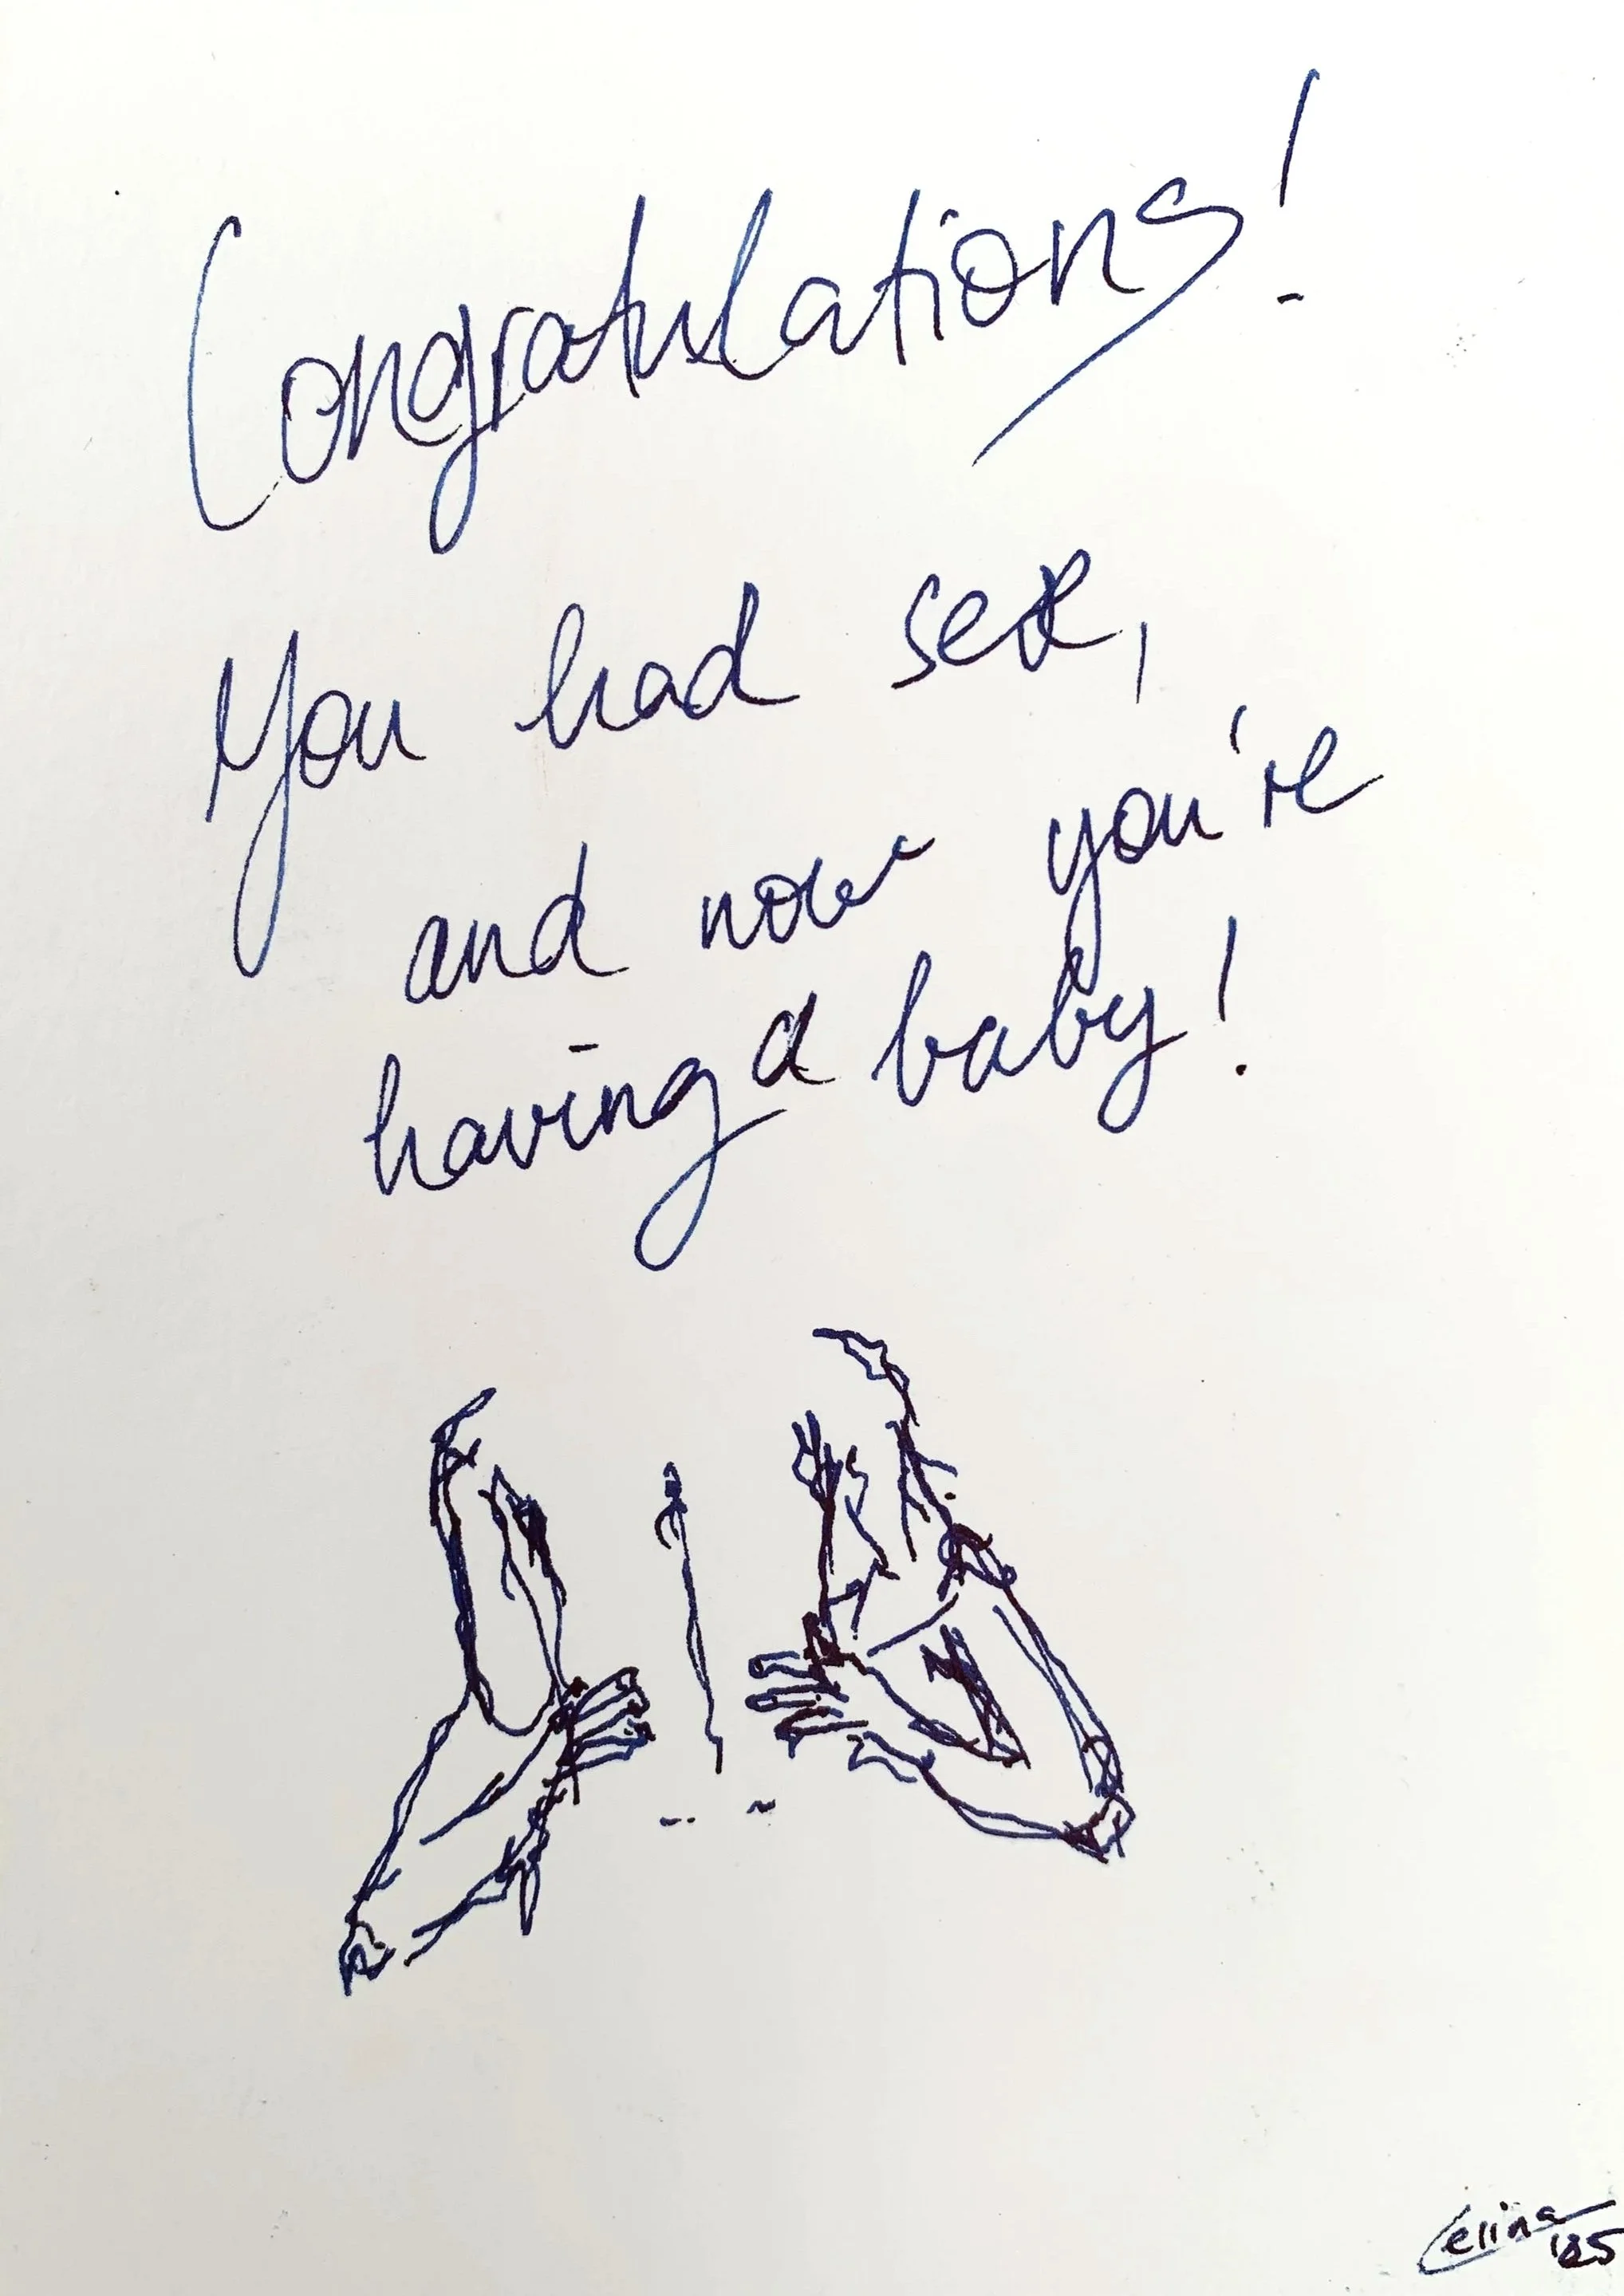 Congratulations!
You had sex,
and now you're
having a baby!
Celina
'85